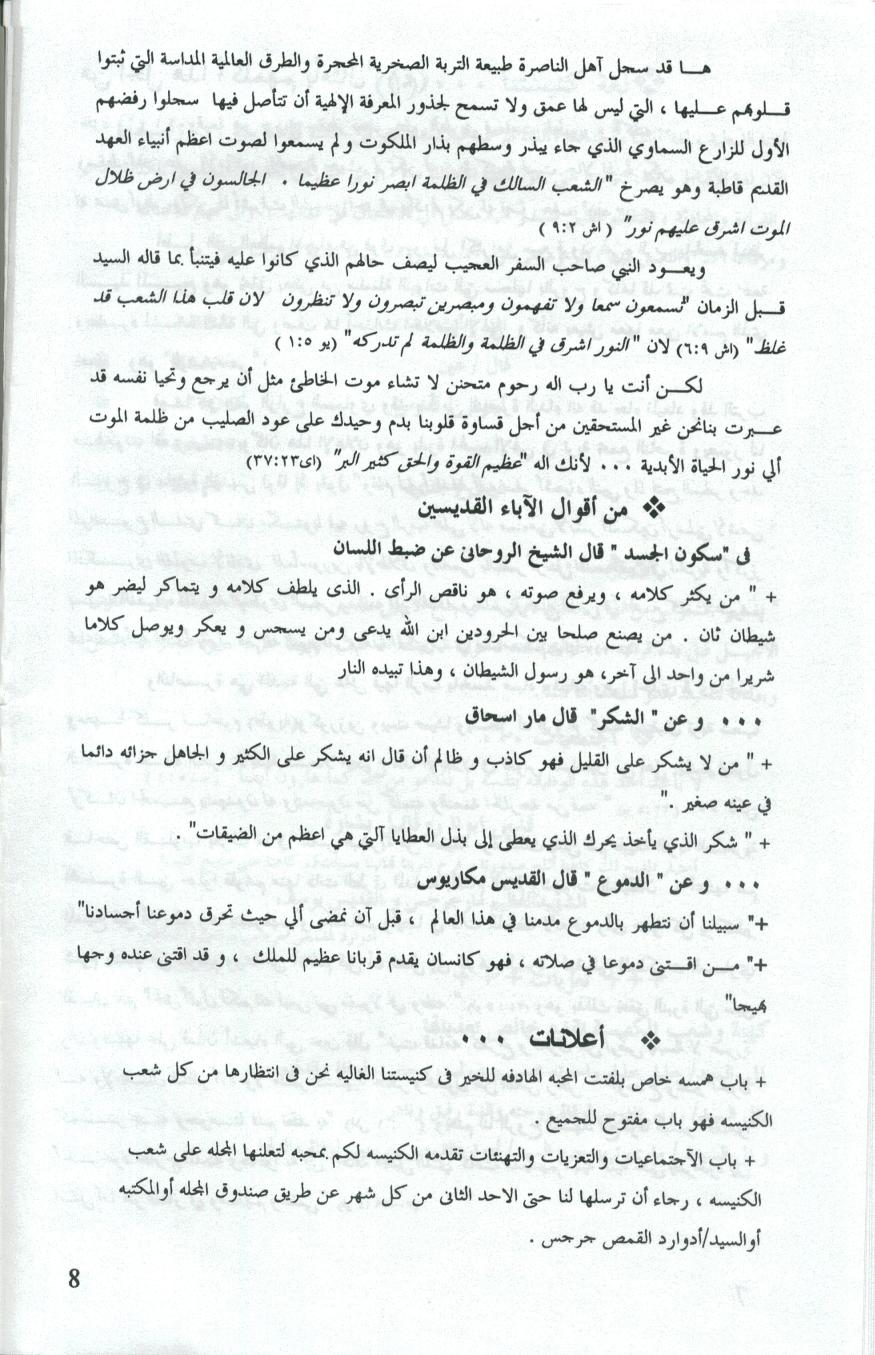 هـا قد سجل آهل الناصرة طبيعة التربة الصخرية المحجرة والطرق العالمية المداسة التي ثبتوا
قـلوبهم عـليها ، التي ليس لها عمق ولا تسمح لجذور المعرفة الإلهية أن تتأصل فيها سجلوا رفضهم
الأول للزارع السماوي الذي جاء يبذر وسطهم بذار الملكوت و لم يسمعوا لصوت اعظم أنبياء العهد
القديم قاطبة وهو يصرخ "الشعب السالك في الظلمة ابصر نورا عظيما . الجالسون في ارض ظلال
الموت اشرق عليهم نور" ( اش ٩:٢ )
ويعـود النبي صاحب السفر العجيب ليصف حالهم الذي كانوا عليه فيتنبأ بما قاله السيد
قـبل الزمان "تسمعون سمعا ولا تفهمون ومبصرين تبصرون ولا تنظرون لان قلب هذا الشعب قد
غلظ" (اش ٦:٩) لان "النور اشرق في الظلمة والظلمة لم تدركه" (يو ١:٥ )
لكـن أنت يا رب اله رحوم متحنن لا تشاء موت الخاطئ مثل أن يرجع وتحيا نفسه قد
عـبرت بنانحن غير المستحقين من أجل قساوة قلوبنا بدم وحيدك على عود الصليب من ظلمة الموت
ألي نور الحياة الأبدية ٠٠٠ لأنك اله "عظيم القوة والحق كثير البر" (اى٣٧:٢٣)
❖ من أقوال الآباء القديسين
فى "سكون الجسد " قال الشيخ الروحانى عن ضبط اللسان
+ " من يكثر كلامه ، ويرفع صوته ، هو ناقص الرأى . الذى يلطف كلامه و يتماكر ليضر هو
شيطان ثان . من يصنع صلحا بين الحرودين ابن الله يدعى ومن يسجس و يعكر ويوصل كلاما
شريرا من واحد الى آخر، هو رسول الشيطان ، وهذا تبيده النار
٠٠٠ و عن "الشكر" قال مار اسحاق
+ " من لا يشكر على القليل فهو كاذب و ظالم أن قال انه يشكر على الكثير و الجاهل جزائه دائما
في عينه صغير ."
+ " شكر الذي يأخذ يحرك الذي يعطى إلى بذل العطايا آلتي هي اعظم من الضيقات" .
٠٠٠ و عن "الدموع " قال القديس مكاريوس
+" سبيلنا أن نتطهر بالدموع مدمنا في هذا العالم ، قبل آن نمضى ألي حيث تحرق دموعنا أجسادنا"
+" مـن اقـتنى دموعا في صلاته ، فهو كانسان يقدم قربانا عظيم للملك ، و قد اقتنى عنده وجها
بهيجا"
❖ أعلانات ٠٠٠
+ باب همسه خاص بلفتت المحبه الهادفه للخير فى كنيستنا الغاليه نحن فى انتظارها من كل شعب
الكنيسه فهو باب مفتوح للجميع .
+ باب الآجتماعيات والتعزيات والتهنئات تقدمه الكنيسه لكم بمحبه لتعلنها المجله على شعب
الكنيسه ، رجاء أن ترسلها لنا حتى الاحد الثانى من كل شهر عن طريق صندوق المجله أوالمكتبه
أوالسيد/أدوارد القمص جرجس .
8